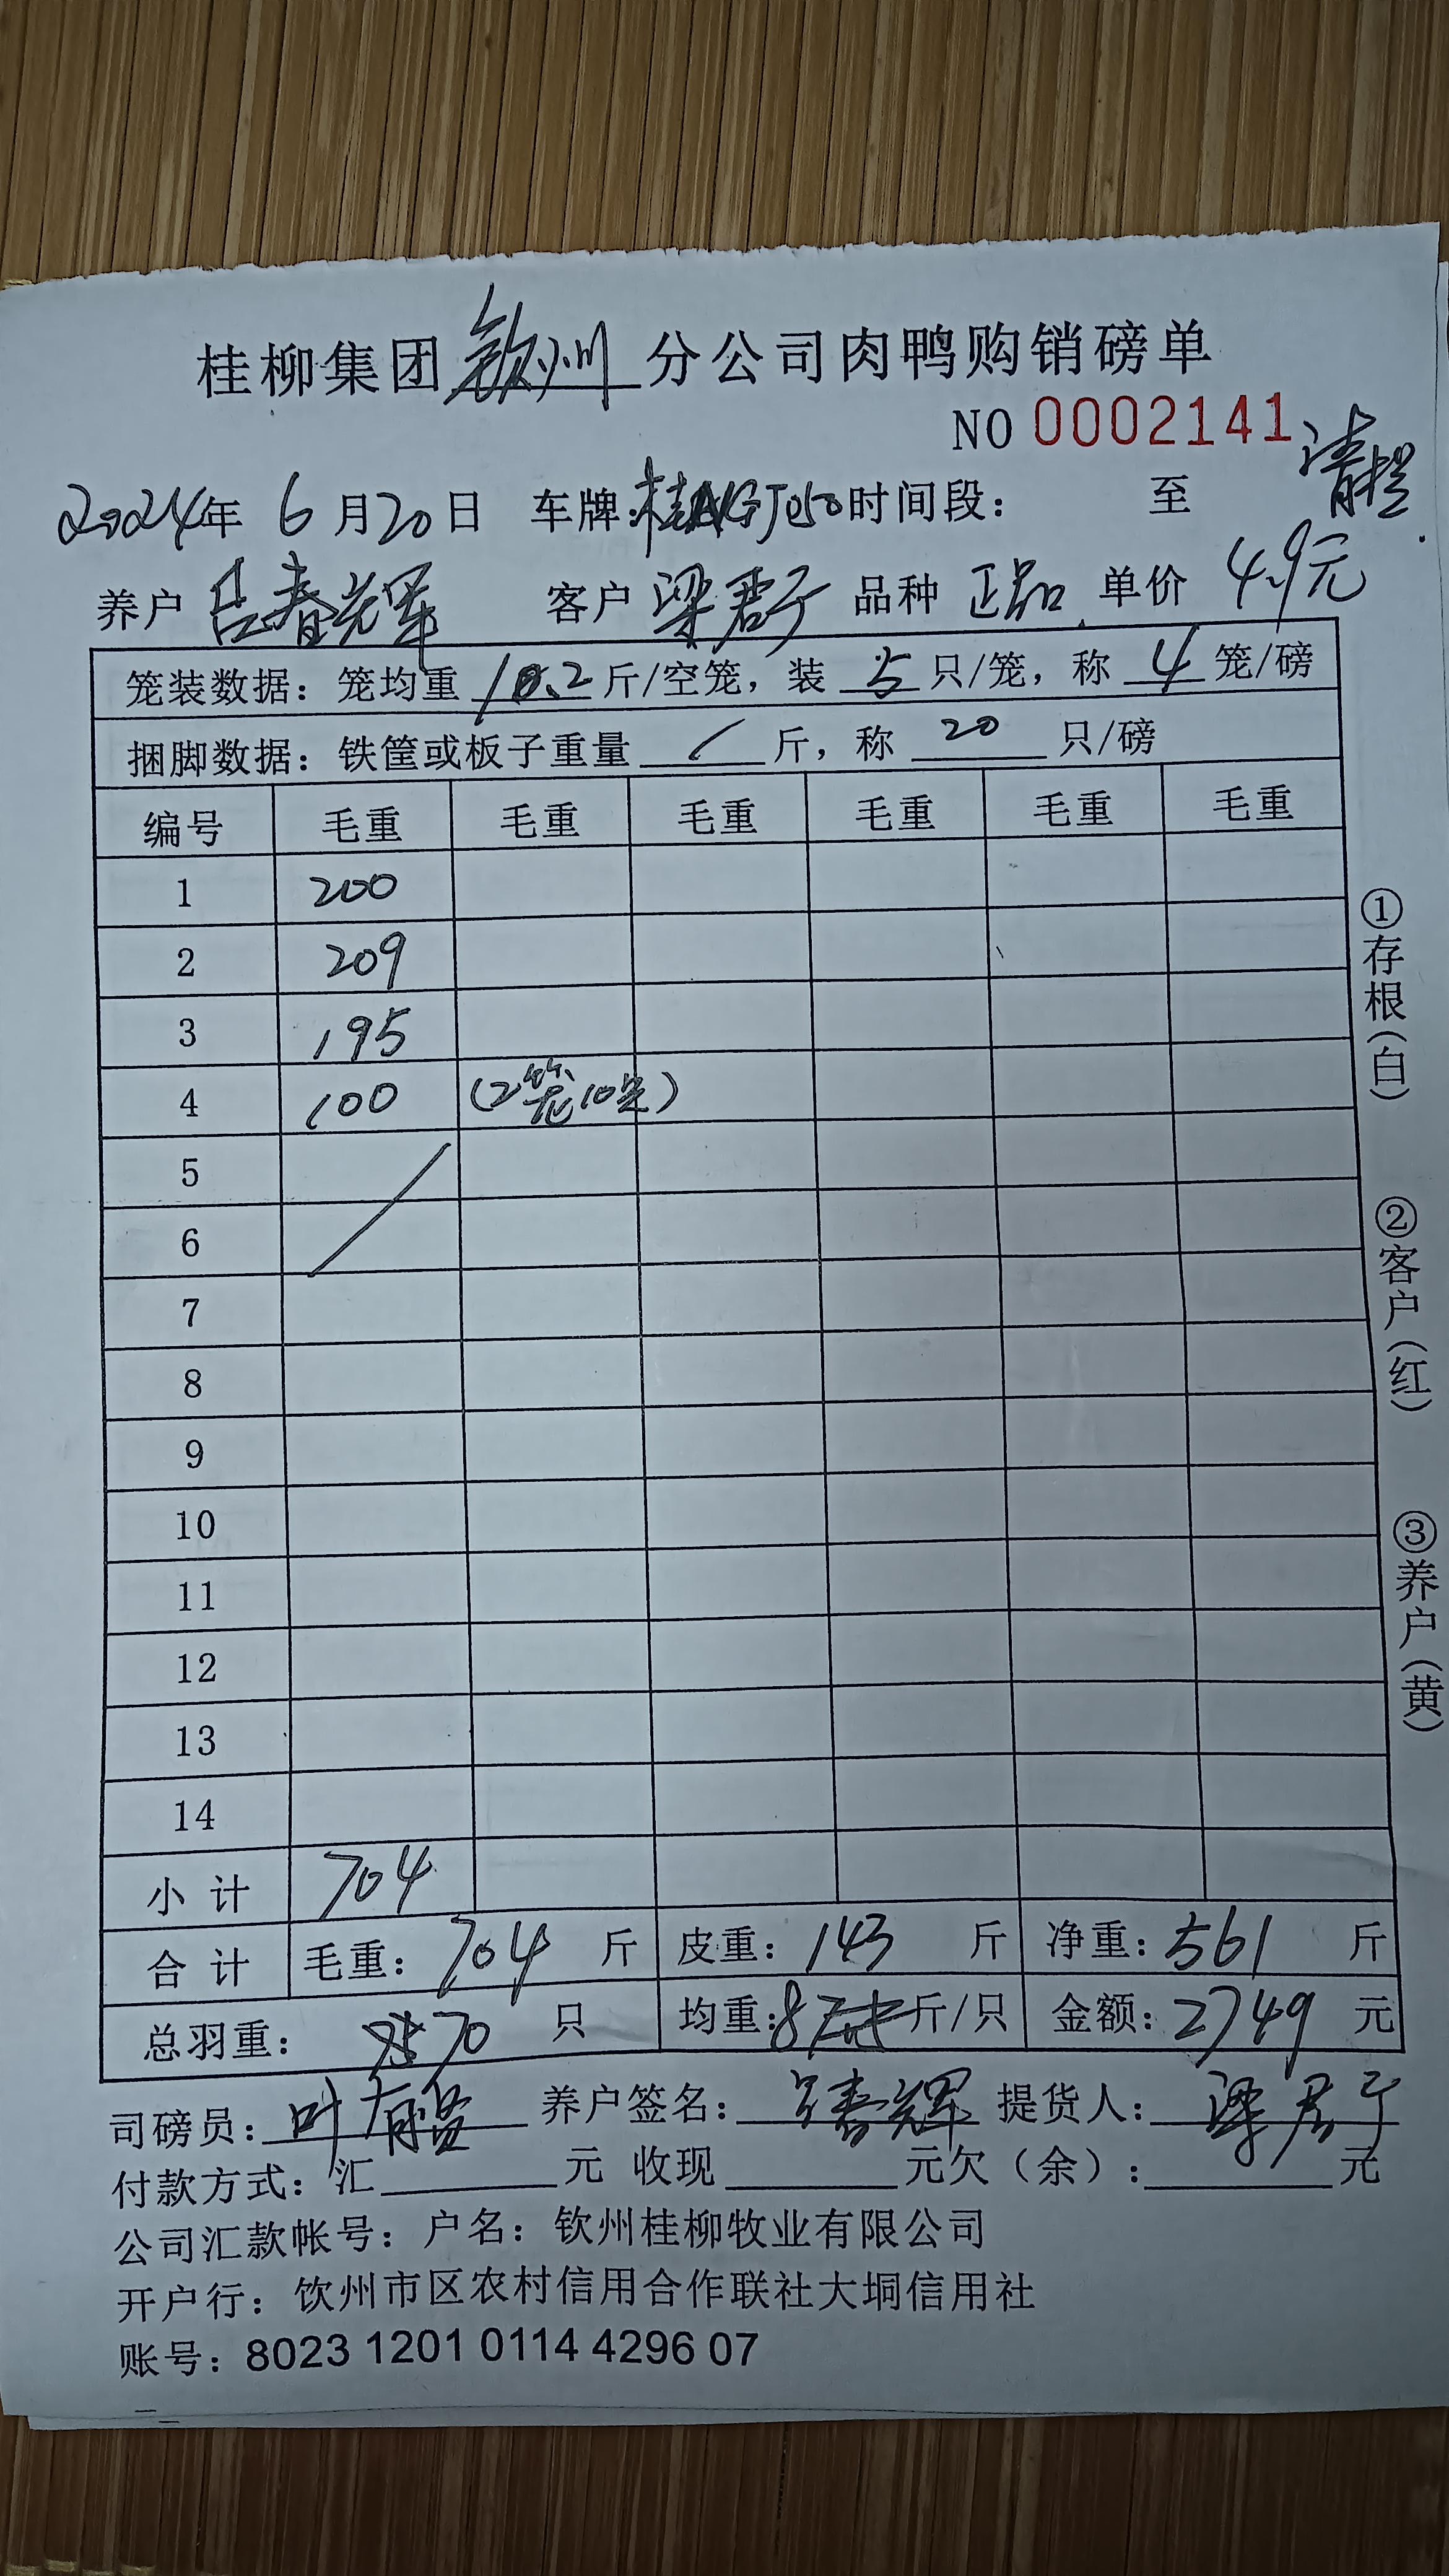 桂柳集团钦州分公司肉鸭购销磅单
NO 0002141
2024年 6月20日 车牌:桂 时间段: 至
养户 吕春辉 客户 梁君于 品种 正品 单价 4.9元
笼装数据: 笼均重 10.2 斤/空笼, 装 5 只/笼, 称 4 笼/磅
捆脚数据: 铁筐或板子重量 / 斤, 称 20 只/磅
编号 毛重 毛重 毛重 毛重 毛重 毛重
1 200
2 209
3 195
4 100 (2笼10只)
5
6
7
8
9
10
11
12
13
14
小计 704
合计 毛重: 704 斤 皮重: 143 斤 净重: 561 斤
总羽重: 70 只 均重: 8 斤/只 金额: 2749 元
司磅员: 叶 养户签名: 吕春辉 提货人: 梁君于
付款方式: 汇 元 收现 元欠(余): 元
公司汇款帐号: 户名: 钦州桂柳牧业有限公司
开户行: 钦州市区农村信用合作联社大垌信用社
账号: 8023 1201 0114 4296 07
①存根(白)
②客户(红)
③养户(黄)